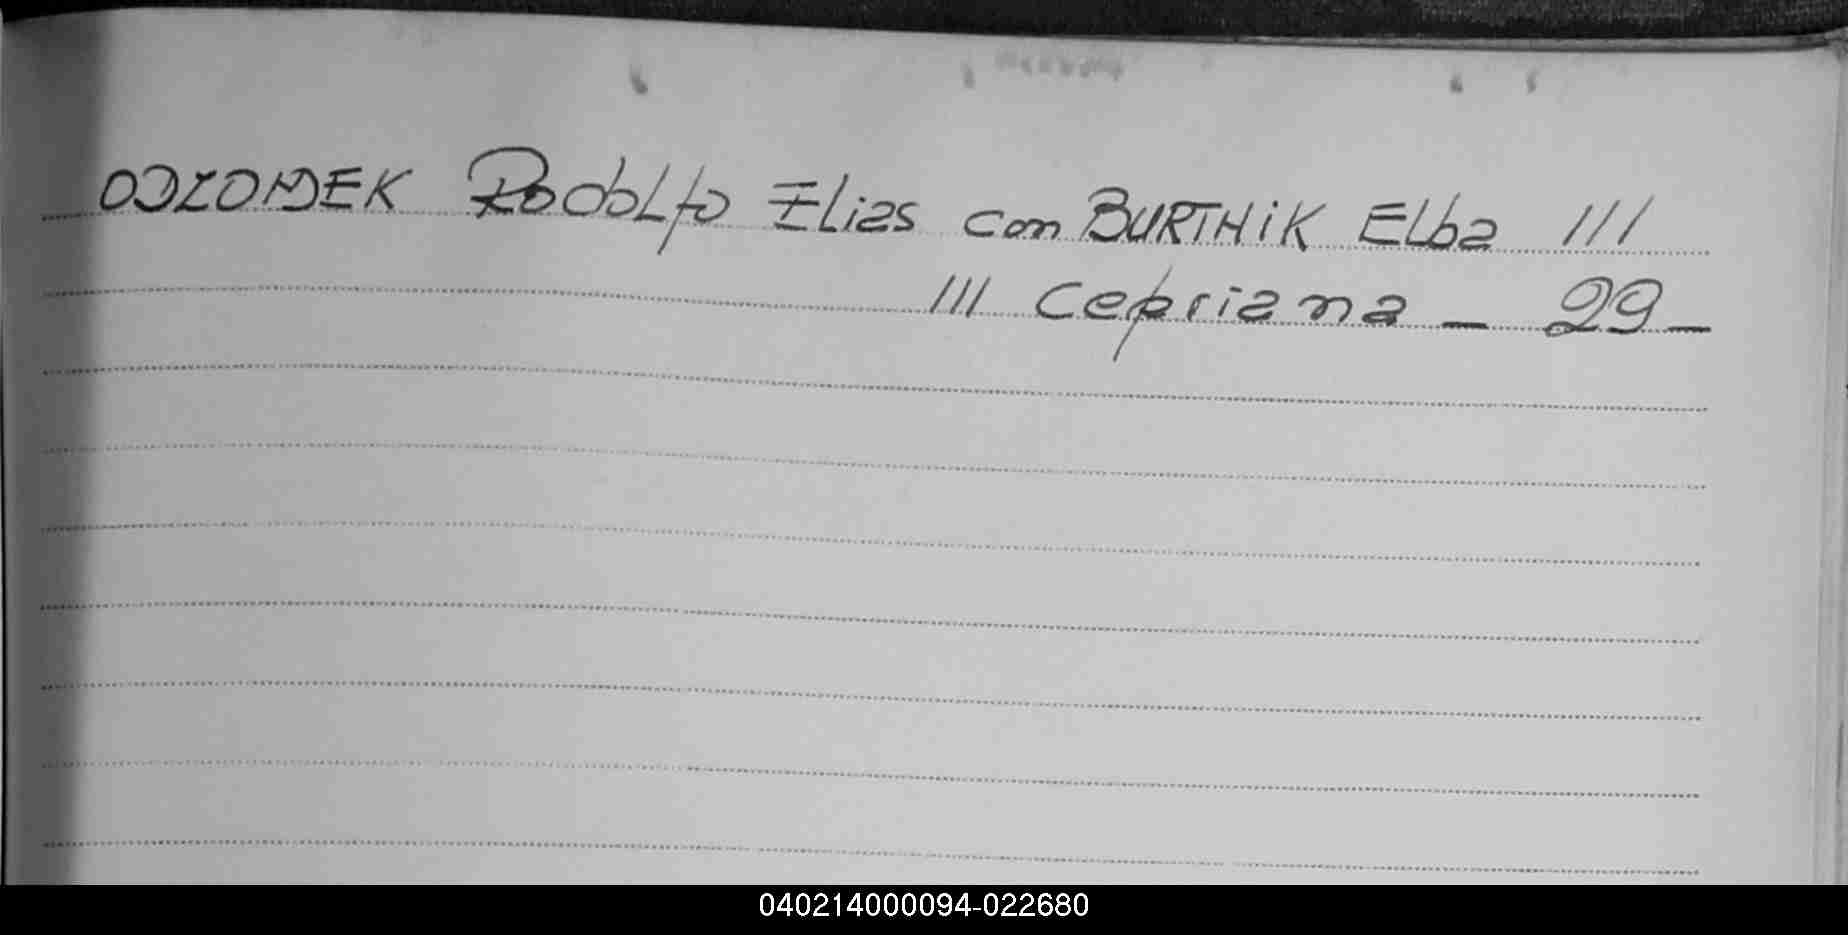 ODZOMEK Rodolfo Elias con BURTNiK Elba ///
/// Cepriana — 29 —
040214000094-022680